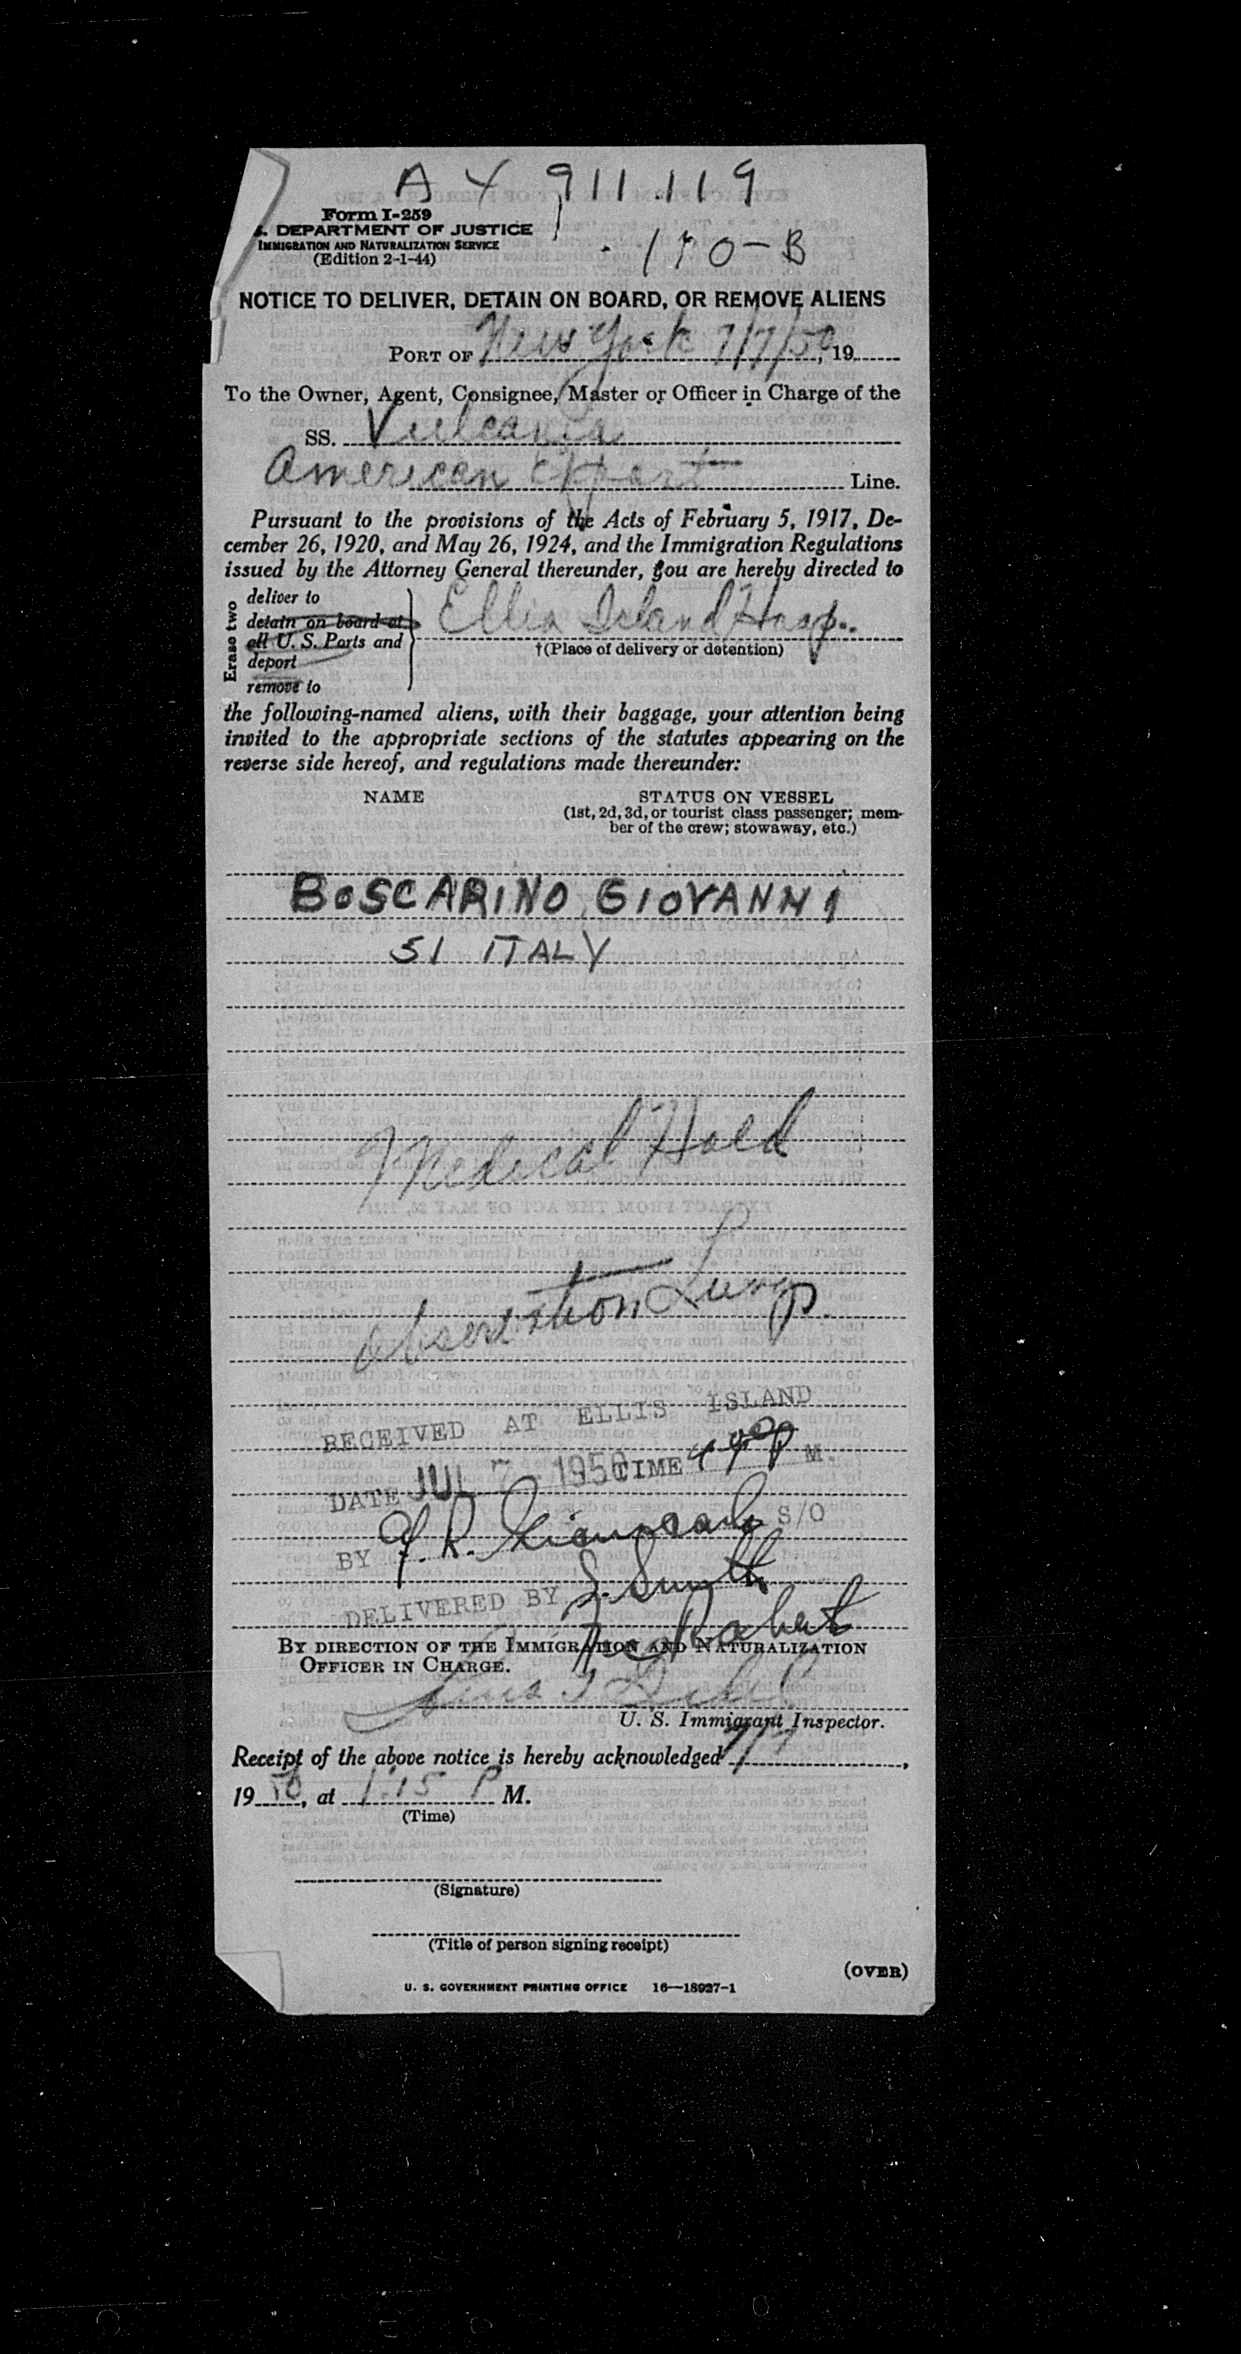 A 4 911.119
Form I-259
S. DEPARTMENT OF JUSTICE
IMMIGRATION AND NATURALIZATION SERVICE
(Edition 2-1-44)
170-B
NOTICE TO DELIVER, DETAIN ON BOARD, OR REMOVE ALIENS
PORT OF New York 7/7/50, 19
To the Owner, Agent, Consignee, Master or Officer in Charge of the
SS. Vulcania
American Export Line.
Pursuant to the provisions of the Acts of February 5, 1917, De-
cember 26, 1920, and May 26, 1924, and the Immigration Regulations
issued by the Attorney General thereunder, you are hereby directed to
Erase two
deliver to
detain on board at
all U. S. Ports and
deport
remove to
Ellis Island Hosp.
†(Place of delivery or detention)
the following-named aliens, with their baggage, your attention being
invited to the appropriate sections of the statutes appearing on the
reverse side hereof, and regulations made thereunder:
NAME STATUS ON VESSEL
(1st, 2d, 3d, or tourist class passenger; mem-
ber of the crew; stowaway, etc.)
BOSCARINO, GIOVANNI
51 ITALY
Medical Hold
observation Lungs.
RECEIVED AT ELLIS ISLAND
DATE JUL 7 1950 TIME M.
BY S/O
DELIVERED BY S. Smith
BY DIRECTION OF THE IMMIGRATION AND NATURALIZATION
OFFICER IN CHARGE.
U. S. Immigrant Inspector.
Receipt of the above notice is hereby acknowledged 7/7,
19 50, at 1:15 P M.
(Time)
(Signature)
(Title of person signing receipt)
(OVER)
U. S. GOVERNMENT PRINTING OFFICE 16—18927-1